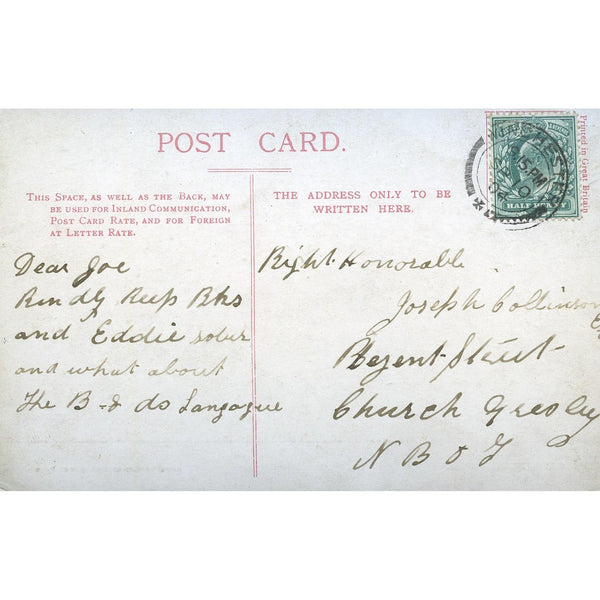 POST CARD.
THIS SPACE, AS WELL AS THE BACK, MAY
BE USED FOR INLAND COMMUNICATION,
POST CARD RATE, AND FOR FOREIGN
AT LETTER RATE.
THE ADDRESS ONLY TO BE
WRITTEN HERE.
Printed in Great Britain
HALF PENNY
Dear Joe
Kindly Keep Bks
and Eddie sober
and what about
The B-d do
Right Honorable
Joseph Collinson
Regent Street
Church Gresley
N B